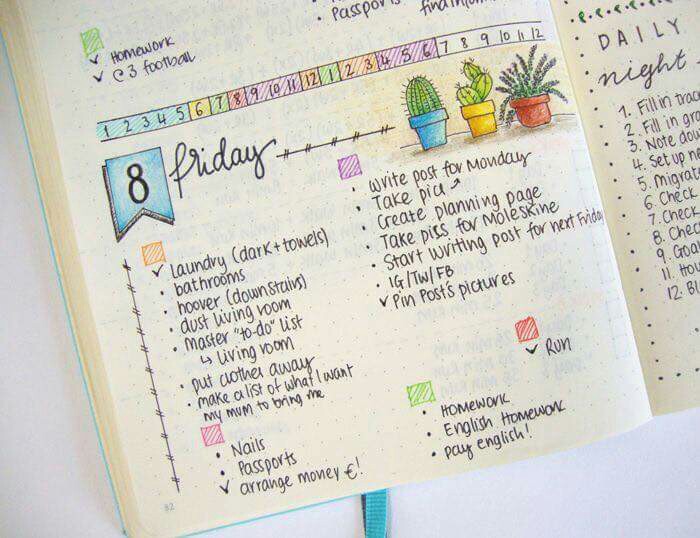 Passports
✓ Homework
✓ C3 football
1 2 3 4 5 6 7 8 9 10 11 12 1 2 3 4 5 6 7 8 9 10 11 12
8 friday
✓ laundry (dark + towels)
• bathrooms
• hoover (downstairs)
• dust living room
• Master "to-do" list
↳ living room
• put clothes away
• make a list of what I want
my mum to bring me
• Nails
• Passports
✓ arrange money €!
• write post for Monday
• Take pics
• Create planning page
• Take pics for Moleskine
• Start writing post for next friday
• IG/TW/FB
✓ Pin Post's pictures
✓ Run
• Homework
• English Homework
• pay english!
82
DAILY
night
1. Fill in
2. Fill in
3. Note
4. Set up
5. Migrate
6. Check
7. Check
8. Check
9.
11.
12.